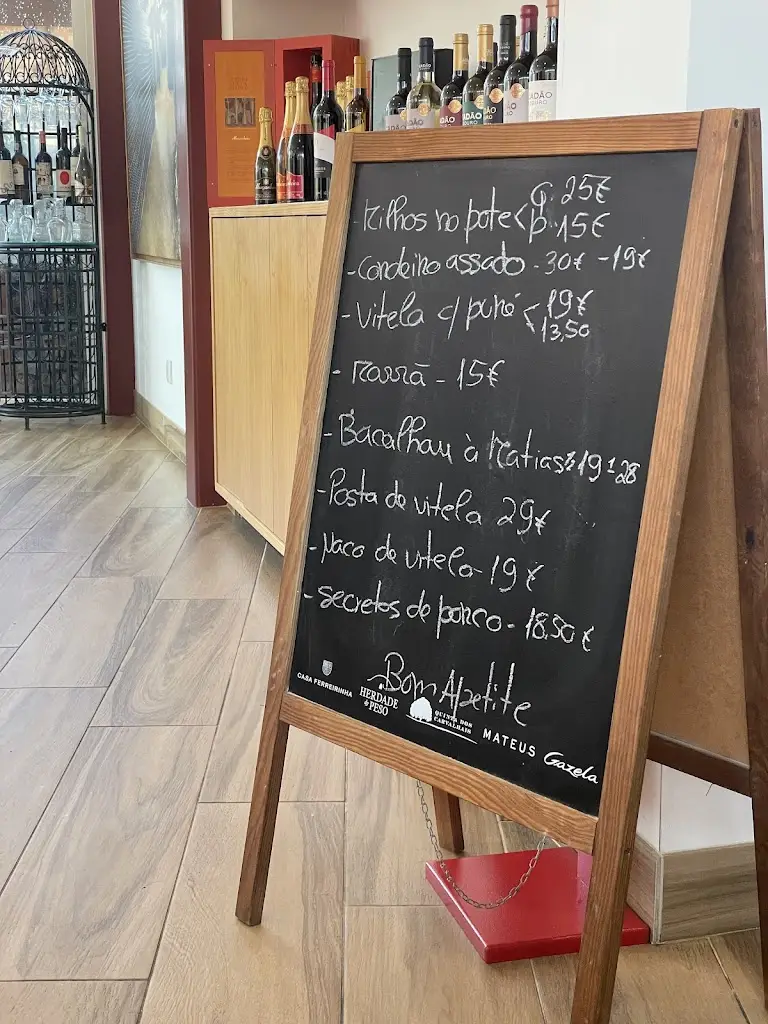 - Milhos no pote < G. 25€
P. 15€
- Cordeiro assado - 30€ - 19€
- Vitela c/ puré < 19€
13,50
- Marrã - 15€
- Bacalhau à Matias 19 - 28
- Posta de vitela 29€
- Naco de vitela - 19€
- secretos de porco - 18,50€
Bom Apetite
CASA FERREIRINHA
HERDADE DO PESO
QUINTA DOS CARVALHAIS
MATEUS
Gazela